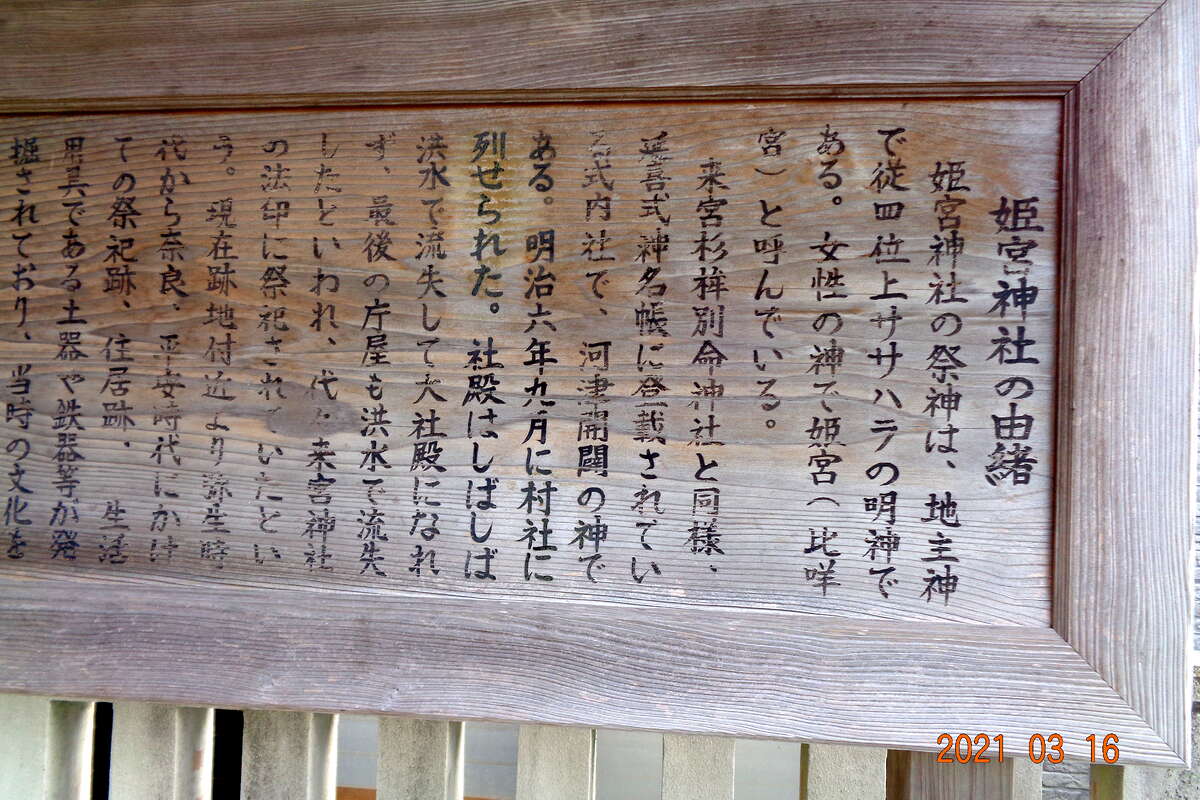 姫宮神社の由緒
姫宮神社の祭神は、地主神
で従四位上ササハラの明神で
ある。女性の神で姫宮（比咩
宮）と呼んでいる。
来宮杉桙別命神社と同様、
延喜式神名帳に登載されてい
る式内社で、河津開闢の神で
ある。明治六年九月に村社に
列せられた。社殿はしばしば
洪水で流失して大社殿になれ
ず、最後の庁屋も洪水で流失
したといわれ、代々来宮神社
の法印に祭祀されていたとい
う。現在跡地付近より弥生時
代から奈良、平安時代にかけ
ての祭祀跡、住居跡、生活
用具である土器や鉄器等が発
掘されており、当時の文化を
2021 03 16